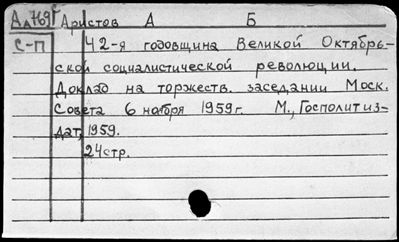 Аристов А Б
С-П
42-я годовщина Великой Октябрь-
ской социалистической революции.
Доклад на торжеств. заседании Моск.
Совета 6 ноября 1959г. М., Госполитиз-
дат, 1959.
24стр.